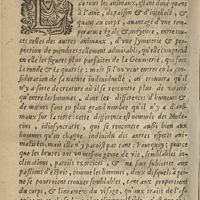 de tous les animaux, estant doüé quant
à l'ame, de
quant au corps, avantagé d'une tem-
perature égale & moyenne, entre
toutes celles des autres animaux, & d'une symmetrie & pro-
portion de membres tellement admirable, qu'elle comprend
en elle les figures plus parfaites de la Geometrie, qui sont
la ronde & la quarrée: mais si l'on veut entrer en la con-
sideration de sa nature individuelle, on remarque qu'il
n'y a sorte de creature où il se rencontre plus de
qu'entre les hommes, dont les differences d'humeurs &
de mœurs sont en plus grand nombre qu'il n'y a d'ani-
maux sur la terre: ce qui a été nommée des Mede-
cins, idiosyncratie, qui se rencontre aussi bien aux
hommes qu'en chaque individu des autres especes ani-
males, mais elle n'y paroist pas tant: Pourquoy? pource
que les brutes ont un mesme genre de vie, semblables in-
clinations, pareils exercices, & ne sont subiettes aux
passions d'esprit, comme les hommes, deux desquels à pei-
ne pourroient se trouver semblables, tant aux proportions
du corps, & lineamens du visage, qu'aux traits de l'es-